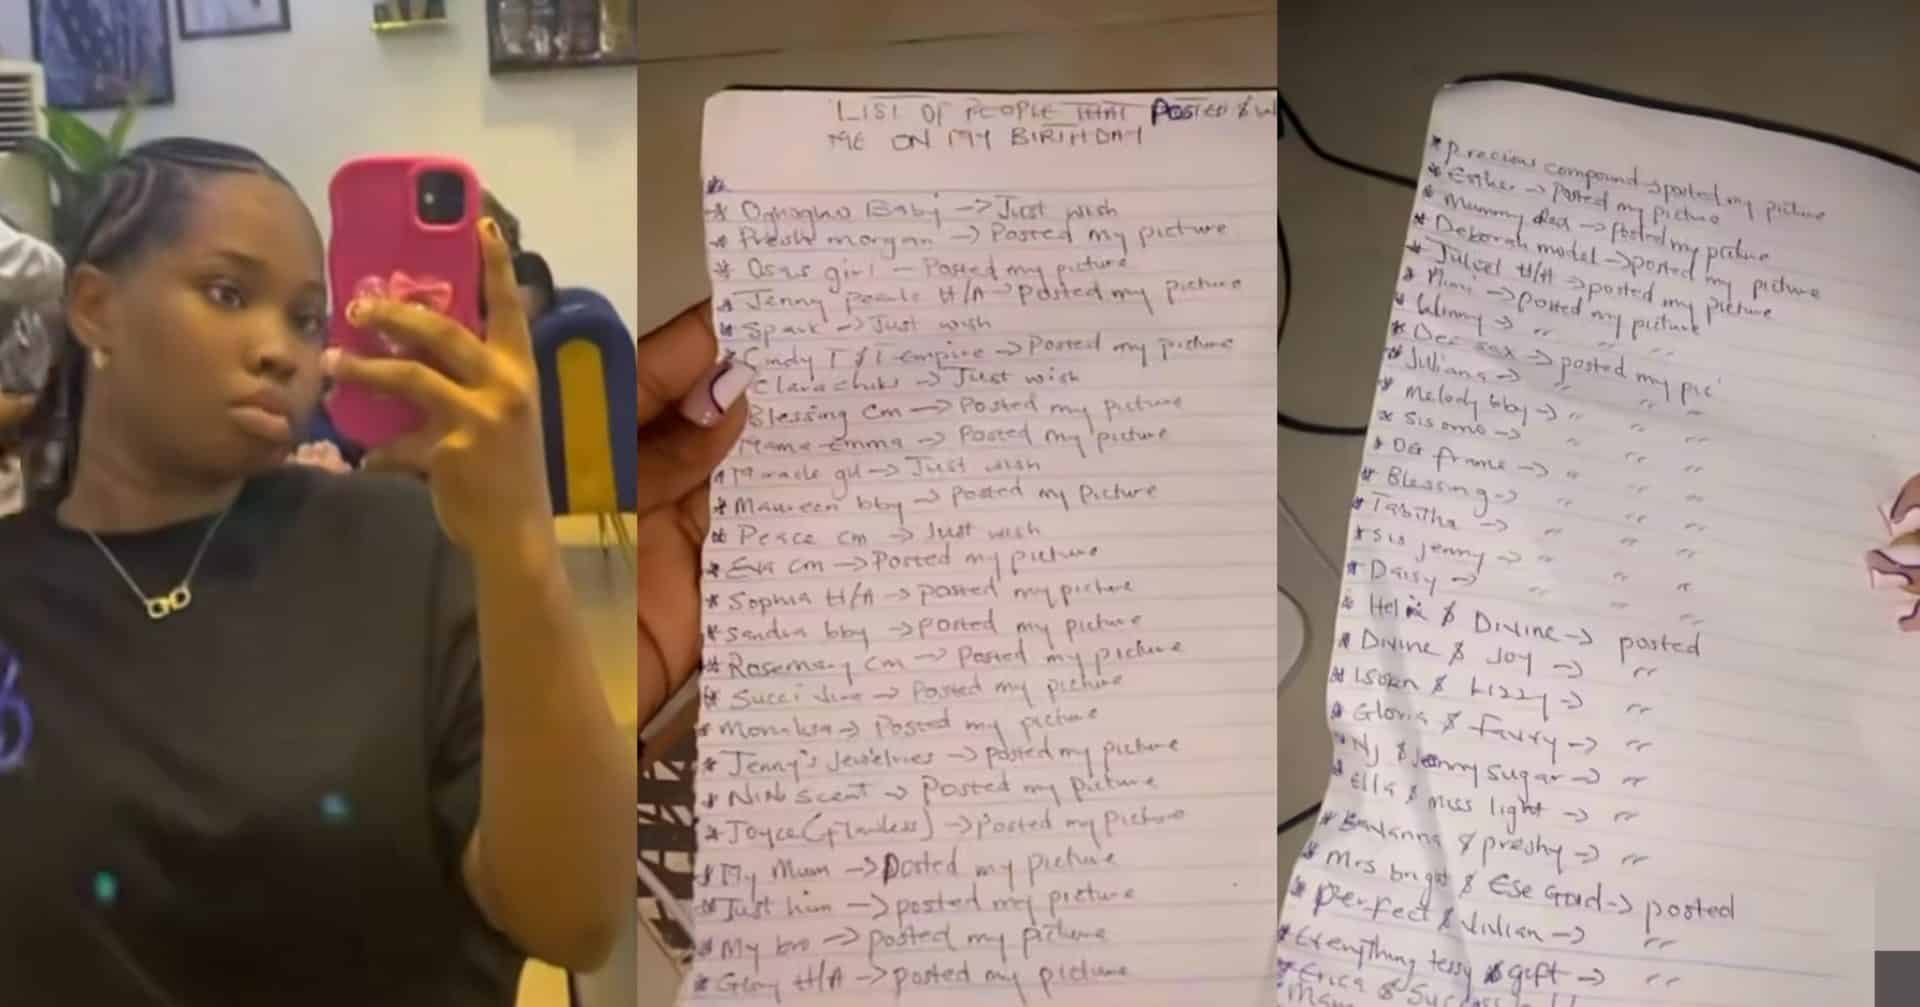 LIST OF PEOPLE THAT POSTED &
ME ON MY BIRTHDAY
*
* Oghogho Baby -> Just wish
* Presh morgan -> Posted my picture
* Osas girl - Posted my picture
* Jenny Pearls H/A -> posted my picture
* Spark -> Just wish
* Cindy T & T empire -> Posted my picture
Clara chiks -> Just wish
Blessing Cm -> Posted my picture
Mama Emma -> Posted my picture
* Miracle gh -> Just wish
* Maureen bby -> Posted my Picture
* Peace cm -> Just wish
* Eva Cm -> Posted my picture
* Sophia H/A -> posted my picture
* Sandra bby -> posted my picture
* Rosemary Cm -> Posted my picture
* Succi -> Posted my picture
* -> Posted my picture
* Jenny's Jewelries -> posted my picture
* NINI Scent -> Posted my picture
* Joyce (flawless) -> Posted my picture
* My Mum -> Posted my picture
* Just him -> posted my picture
* My bro -> posted my picture
* Glory H/A -> posted my picture
* Precious compound -> posted my picture
* Esther -> Posted my picture
* Mummy -> Posted my picture
* Deborah model -> posted my picture
* Juliet H/H -> posted my picture
* Mimi -> posted my picture
* Winny -> " " "
* -> posted my pic
* Juliana -> " " "
* Melody bby -> " " "
* Sis omo -> " " "
* OG frame -> " " "
* Blessing -> " " "
* Tabitha -> " " "
* Sis Jenny -> " " "
* Daisy -> " " "
* & Divine -> posted
* Divine & Joy -> "
* Isoken & Lizzy -> "
* Gloria & Favvy -> "
* NJ & Jenny sugar -> "
* Ella & Miss light -> "
* & preshy -> "
* Mrs bright & Ese Gold -> posted
* Perfect & Vivian -> "
* Everything tessy & gift -> "
* Erica & Success